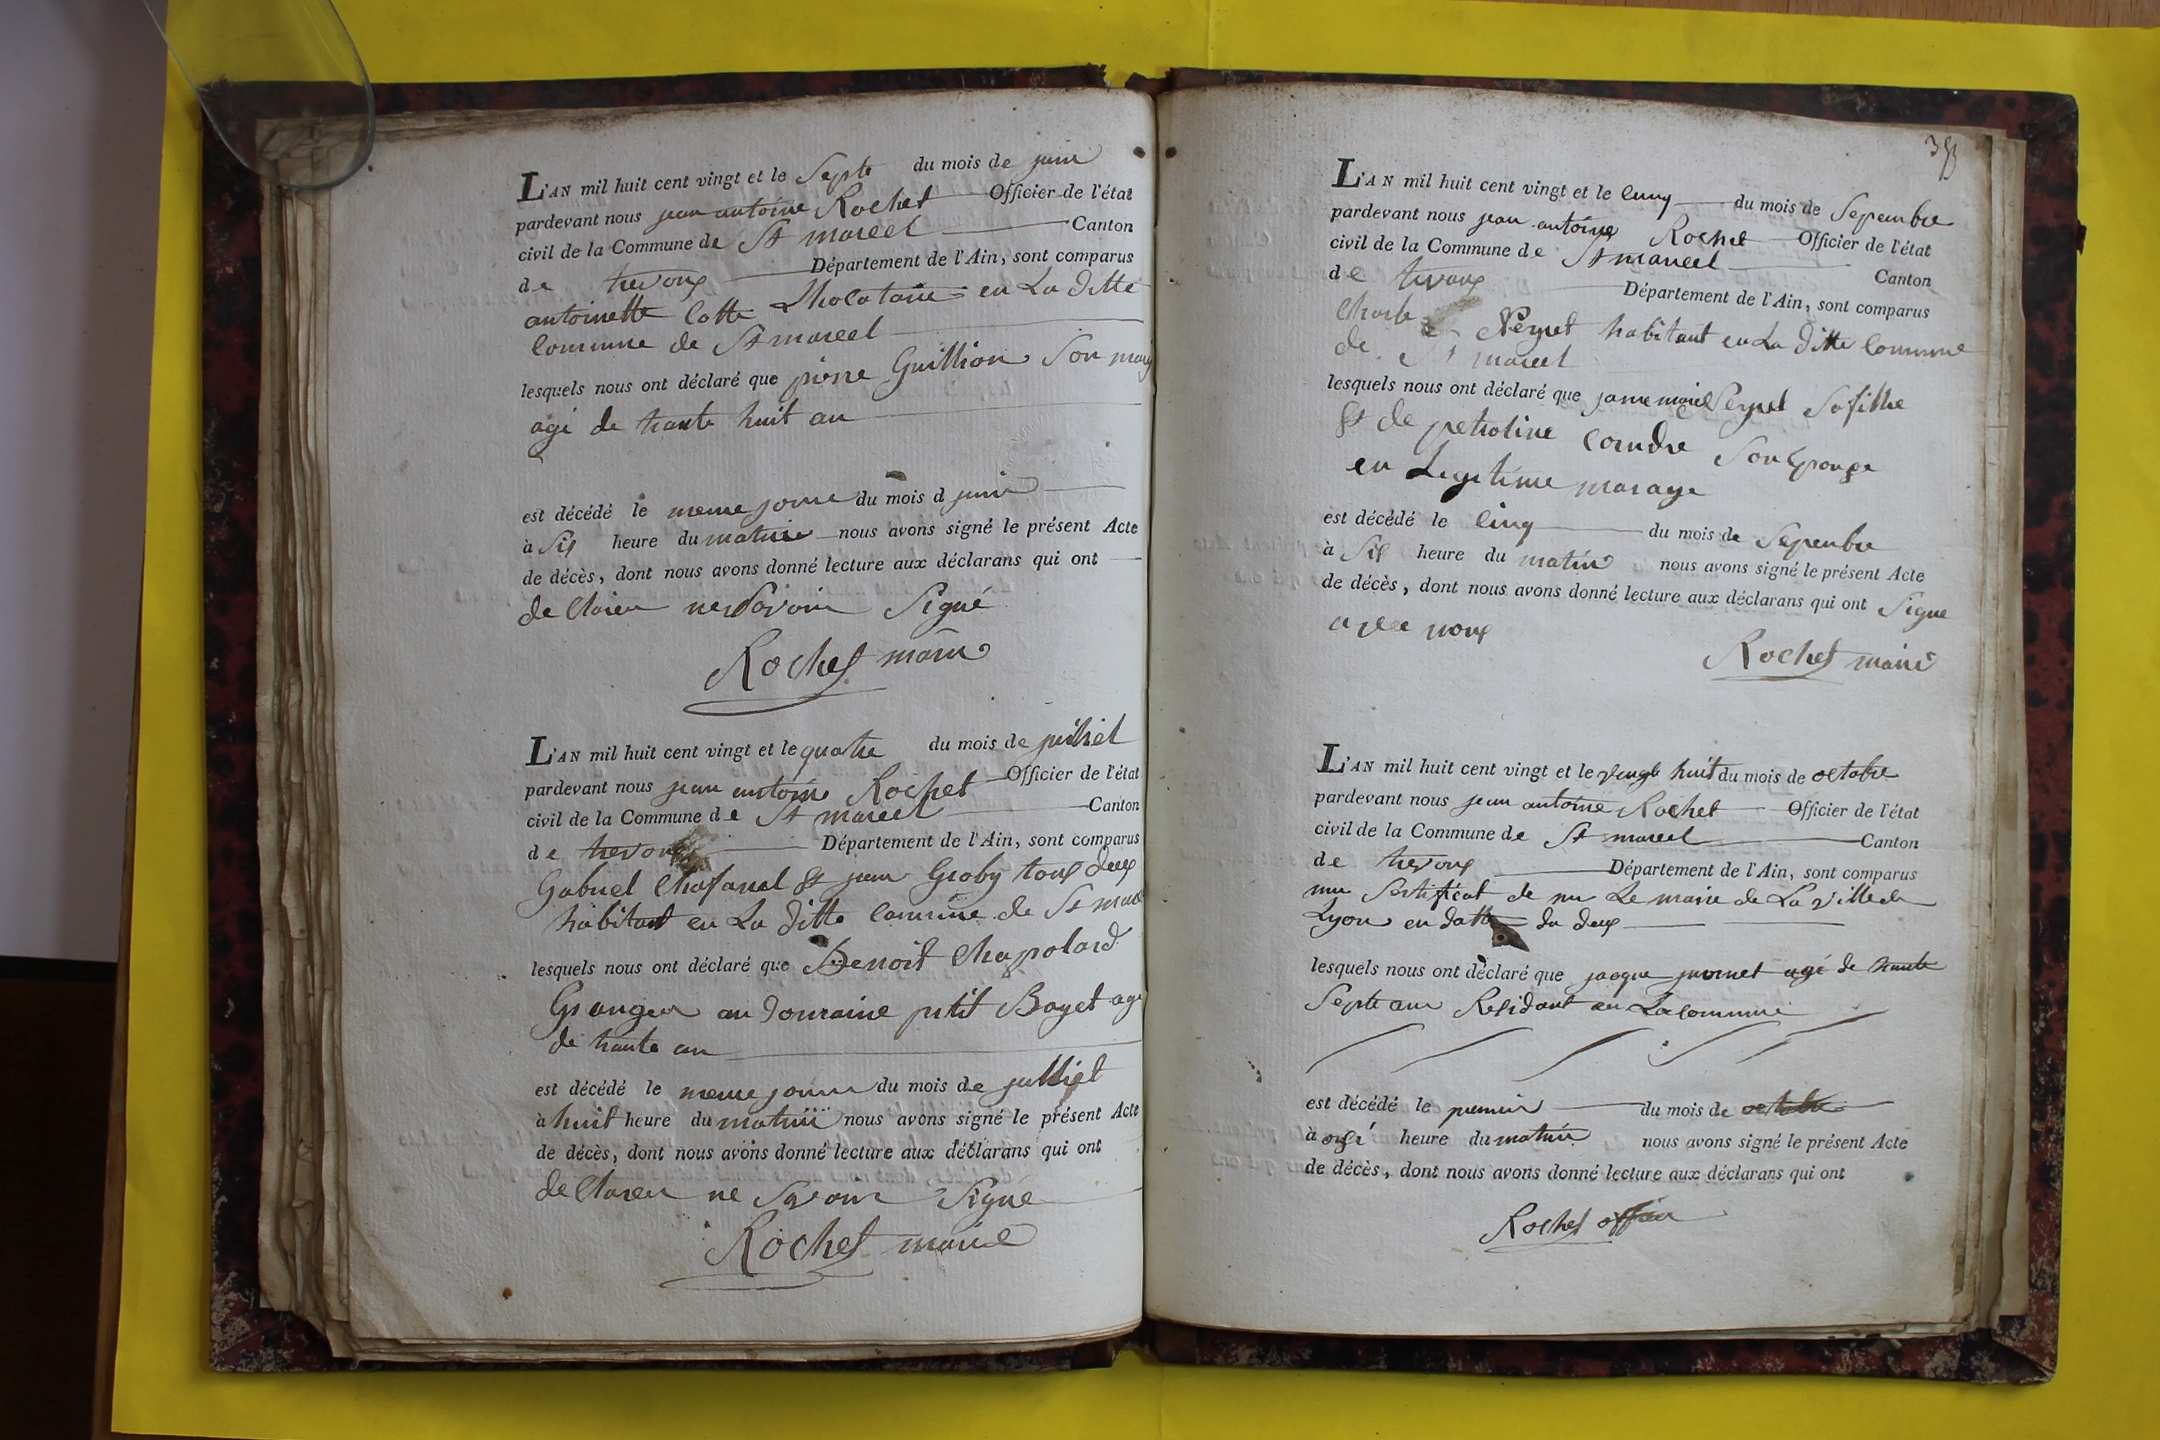 L'AN mil huit cent vingt et le Septe du mois de juin
pardevant nous jean antoine Rochet Officier de l'état
civil de la Commune de St marcel Canton
de trevoux Département de l'Ain, sont comparus
antoinette Cotte en La ditte
Commune de St marcel
lesquels nous ont déclaré que pierre Guillion Son mary
agé de trante huit an
est décédé le meme jour du mois d juin
à Six heure du matin nous avons signé le présent Acte
de décès, dont nous avons donné lecture aux déclarans qui ont
de Clarer ne Savoir Signé
Rochet maire
L'AN mil huit cent vingt et le quatre du mois de julliet
pardevant nous jean antoine Rochet Officier de l'état
civil de la Commune de St marcel Canton
de trevoux Département de l'Ain, sont comparus
Gabriel Chafanel et jean Groby toux deux
habitant en La ditte Commune de St marcel
lesquels nous ont déclaré que Benoit Chapolard
Granger au domaine petit Bayet agé
de trante an
est décédé le meme jour du mois de julliet
à huit heure du matin nous avons signé le présent Acte
de décès, dont nous avons donné lecture aux déclarans qui ont
de Clarer ne Savoir Signé
Rochet maire
L'AN mil huit cent vingt et le Cinq du mois de Sepembre
pardevant nous jean antoine Rochet Officier de l'état
civil de la Commune de St marcel Canton
de trevoux Département de l'Ain, sont comparus
Peyret habitant en La ditte Commune
de St marcel
lesquels nous ont déclaré que Peyret Sa fillie
et de petroline Coindre Son Epouse
en Legitime mariage
est décédé le Cinq du mois de Sepembre
à Six heure du matin nous avons signé le présent Acte
de décès, dont nous avons donné lecture aux déclarans qui ont Signe
avec nous
Rochet maire
L'AN mil huit cent vingt et le vingt huit du mois de octobre
pardevant nous jean antoine Rochet Officier de l'état
civil de la Commune de St marcel Canton
de trevoux Département de l'Ain, sont comparus
Sertificat de Le maire de La ville de
Lyon en datte du deux
lesquels nous ont déclaré que jacque agé de trante
Septe an Residant en La Commune
est décédé le premier du mois de octobre
à onze heure du matin nous avons signé le présent Acte
de décès, dont nous avons donné lecture aux déclarans qui ont
Rochet officier